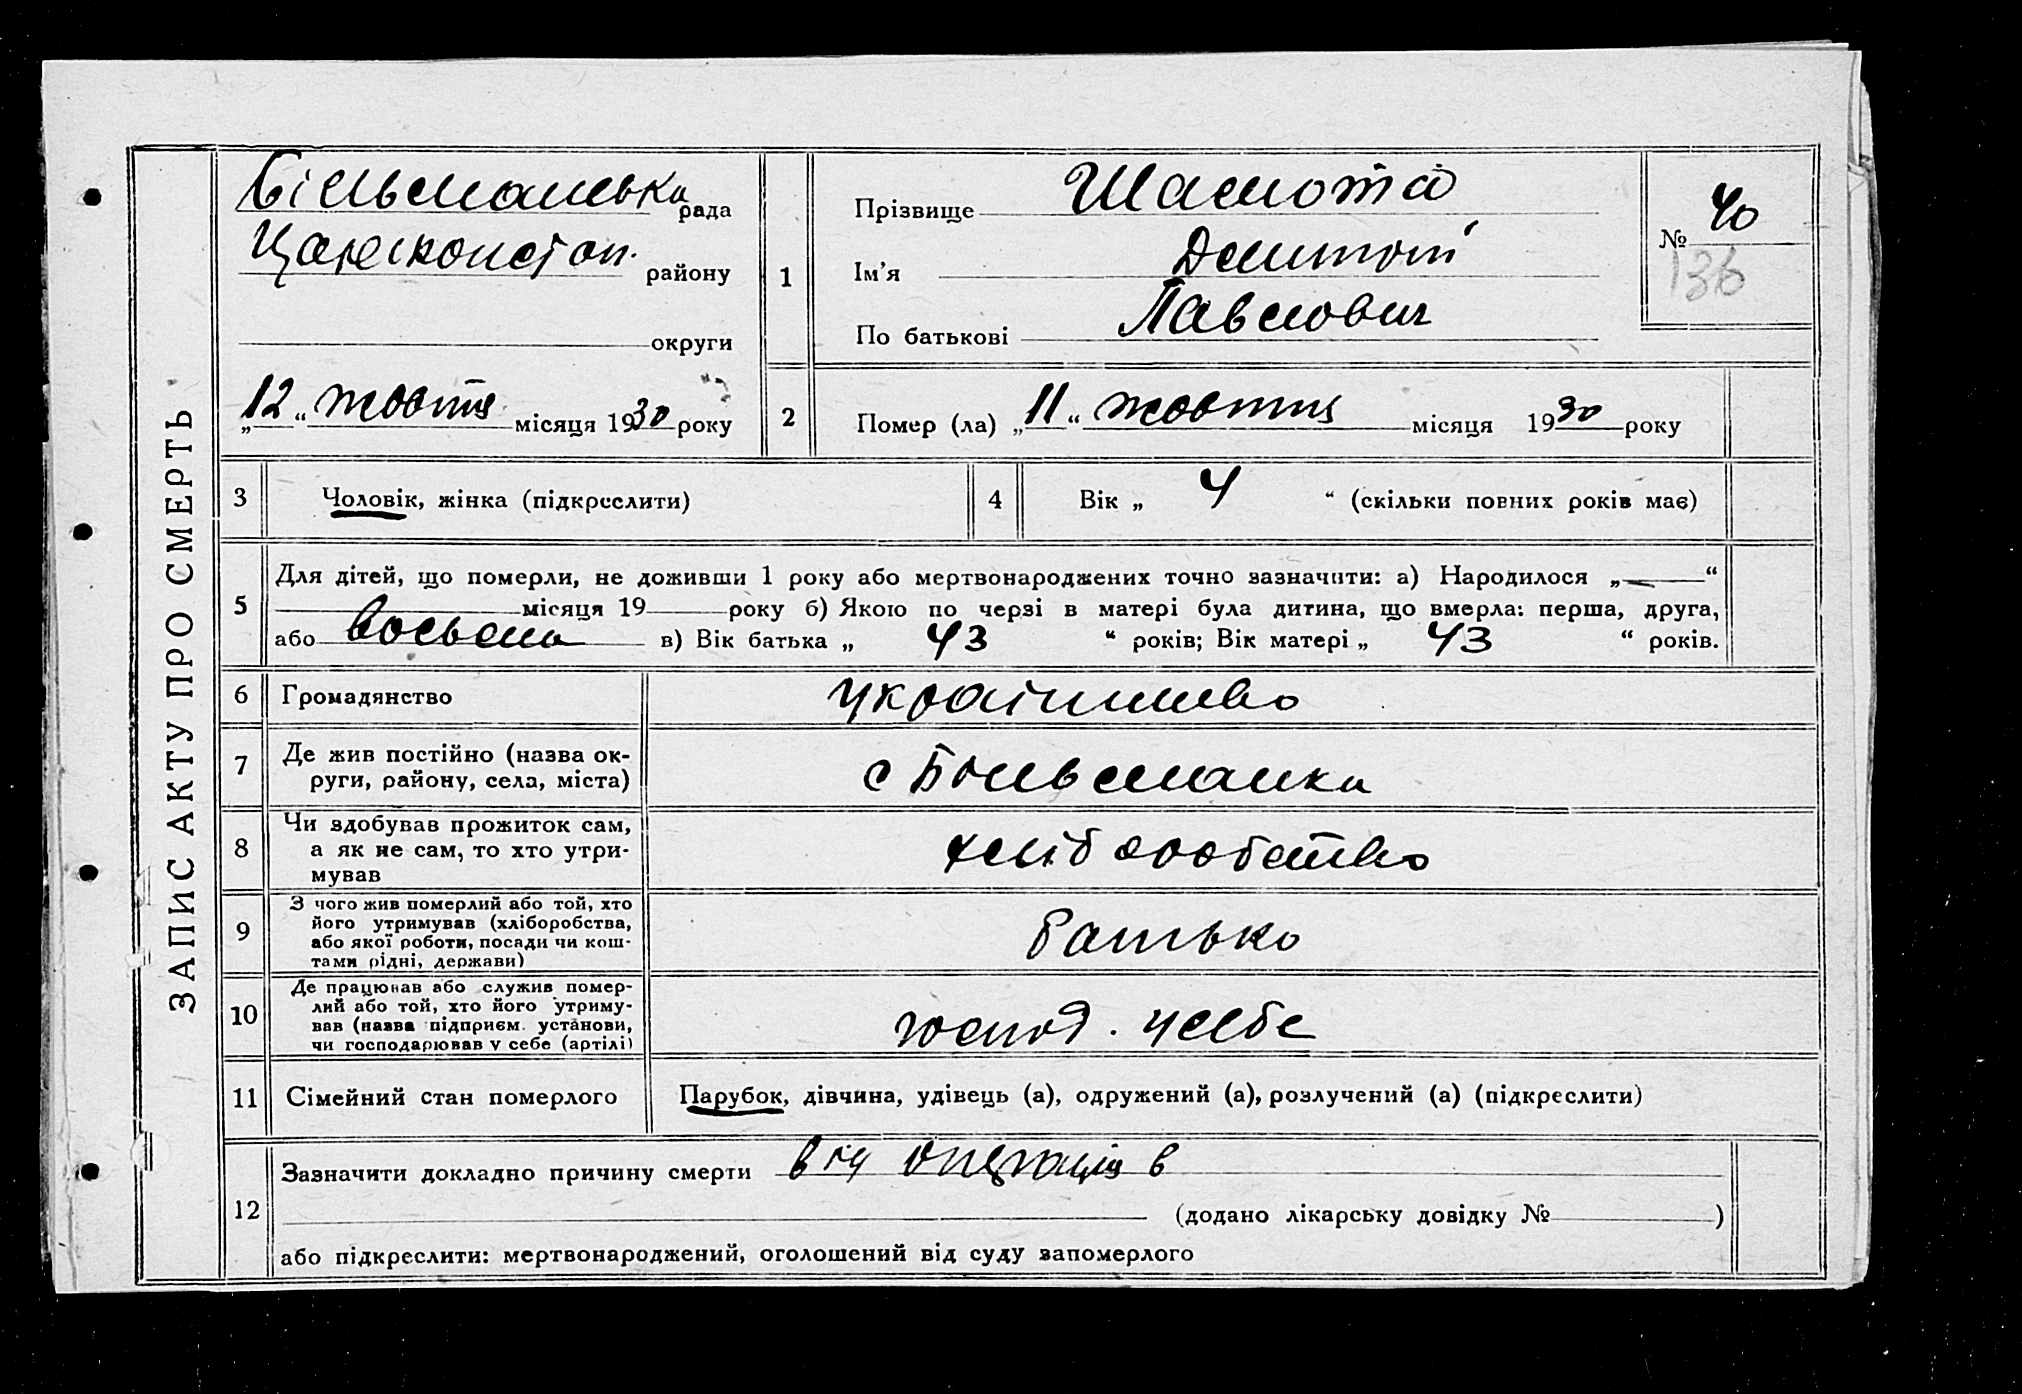 ЗАПИС АКТУ ПРО СМЕРТЬ
Більманська рада
Царекон­стан. району
округи
„12“ жовтня місяця 1930 року
1
Прізвище Шамота
Ім’я Дмитрій
По батькові Павлович
№ 40
136
2
Помер (ла) „11“ жовтня місяця 1930 року
3
Чоловік, жінка (підкреслити)
4
Вік „ 4 “ (скільки повних років має)
5
Для дітей, що померли, не доживши 1 року або мертвонароджених точно зазначити: а) Народилося „—“
місяця 19 року б) Якою по черзі в матері була дитина, що вмерла: перша, друга,
або восьма в) Вік батька „ 43 “ років; Вік матері „ 43 “ років.
6
Громадянство
українство
7
Де жив постійно (назва ок-
руги, району, села, міста)
с Більманка
8
Чи здобував прожиток сам,
а як не сам, то хто утри-
мував
хліборобство
9
З чого жив померлий або той, хто
його утримував (хліборобства,
або якої роботи, посади чи кош-
тами рідні, держави)
батько
10
Де працював або служив помер-
лий або той, хто його утриму-
вав (назва підприєм. установи,
чи господарював у себе (артілі)
господ. у себе
11
Сімейний стан померлого
Парубок, дівчина, удівець (а), одружений (а), розлучений (а) (підкреслити)
12
Зазначити докладно причину смерти від операція в
(додано лікарську довідку № )
або підкреслити: мертвонароджений, оголошений від суду запомерлого